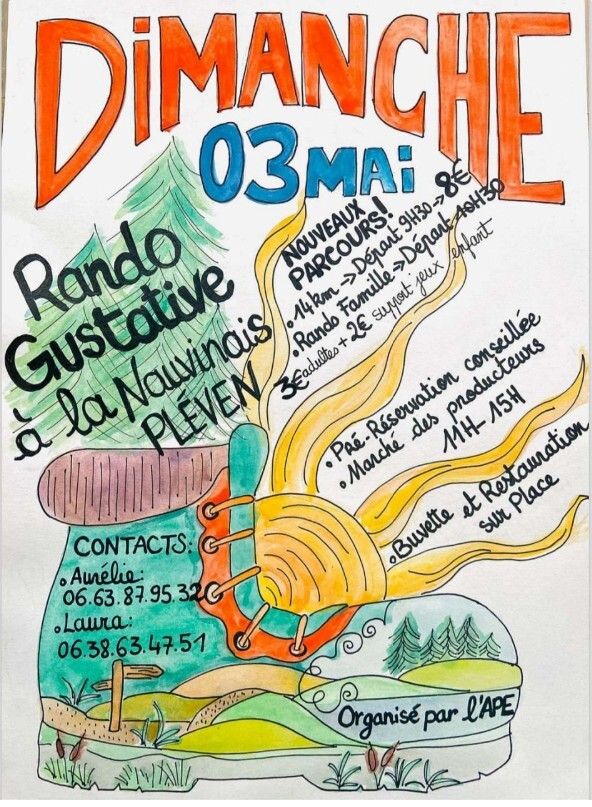 DIMANCHE
03 MAI
Rando
Gustative
à la Nauvinais
PLÉVEN
NOUVEAUX
PARCOURS!
• 14km -> Départ 9H30 -> 8€
• Rando Famille -> Départ 10H30
3€ adultes + 2€ support jeux enfant
• Pré-Réservation conseillée
• Marché des producteurs
11H-15H
• Buvette et Restauration
sur Place
CONTACTS:
• Aurélie:
06.63.87.95.32
• Laura:
06.38.63.47.51
Organisé par l'APE